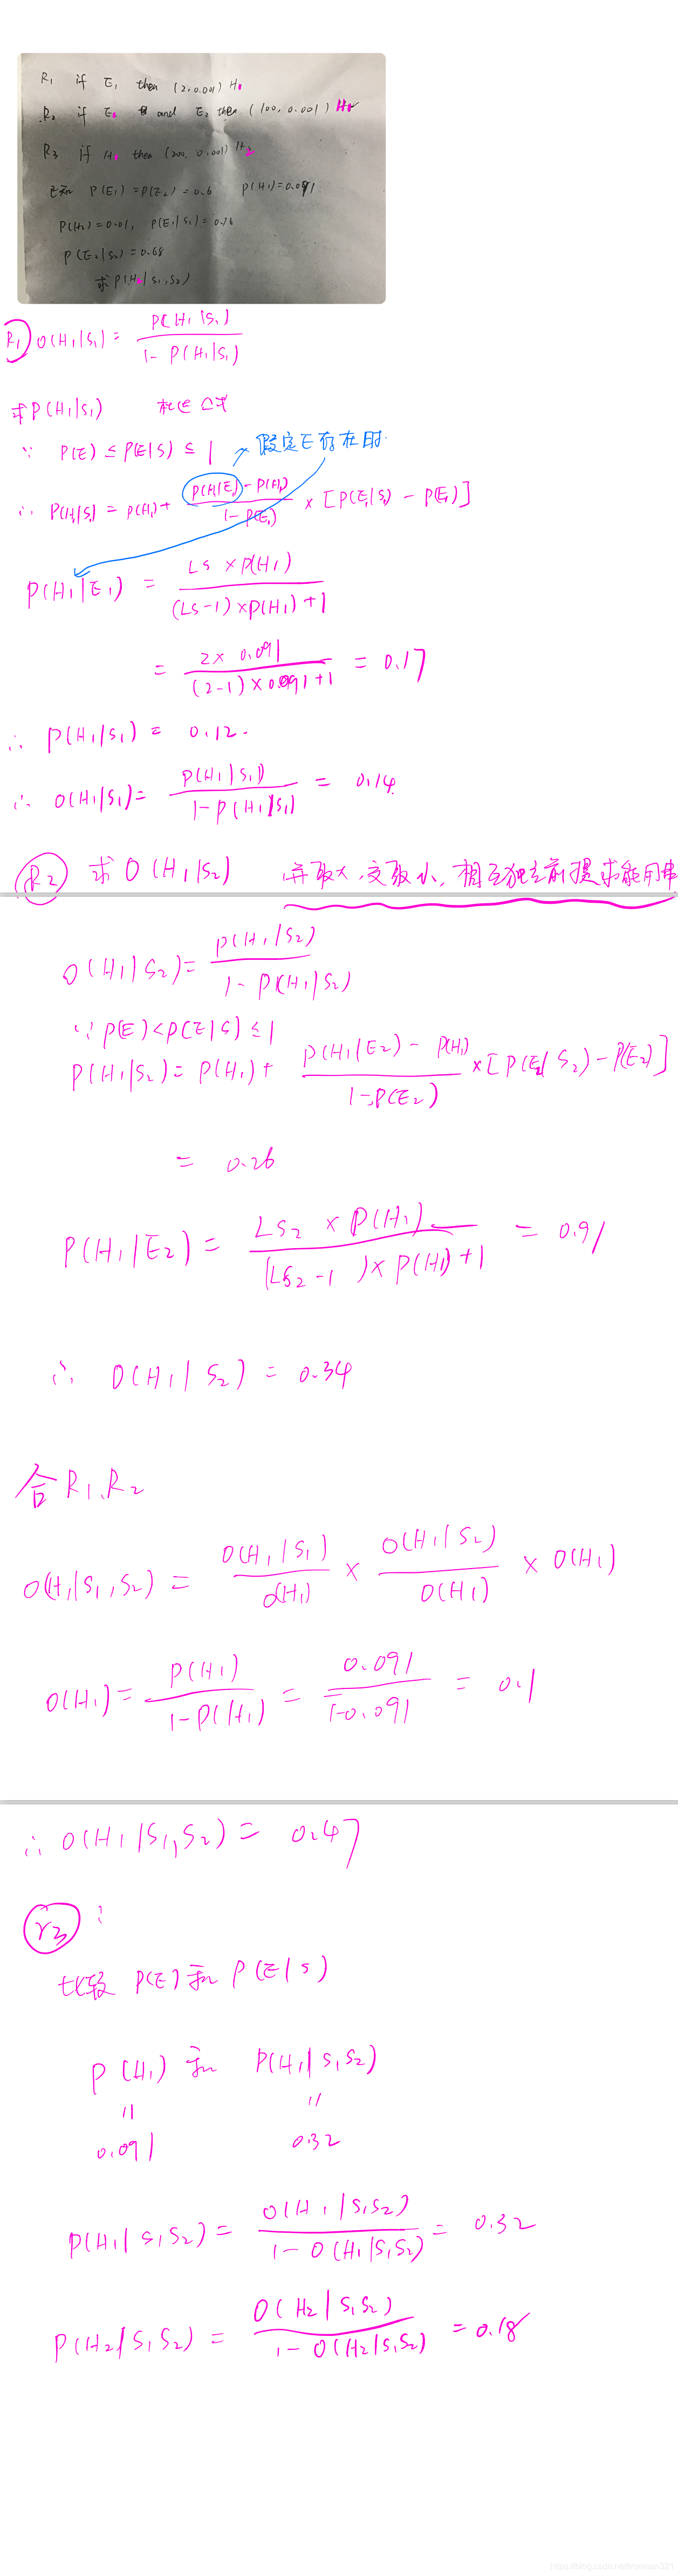 R₁ if E₁ then (2, 0.001) H₁
R₂ if E₁ and E₂ then (100, 0.001) H₁
R₃ if H₁ then (200, 0.001) H₂
已知 P(E₁)=P(E₂)=0.6 P(H₁)=0.091
P(H₂)=0.01, P(E₁|S₁)=0.76
P(E₂|S₂)=0.68
求P(H₂|S₁,S₂)
R₁ O(H₁|S₁)= P(H₁|S₁) / 1-P(H₁|S₁)
求P(H₁|S₁) 公式
∵ P(E) ≤ P(E|S) ≤ 1 假定E存在时
∴ P(H₁|S₁) = P(H₁) + P(H₁|E₁)-P(H₁) / 1-P(E₁) × [P(E₁|S₁) - P(E₁)]
P(H₁|E₁) = LS × P(H₁) / (LS-1)×P(H₁)+1
= 2×0.091 / (2-1)×0.091+1 = 0.17
∴ P(H₁|S₁) = 0.12.
∴ O(H₁|S₁)= P(H₁|S₁) / 1-P(H₁|S₁) = 0.14
R₂ 求 O(H₁|S₂) 并取大,交取小,相互独立前提才能用
O(H₁|S₂)= P(H₁|S₂) / 1-P(H₁|S₂)
∵ P(E)<P(E|S)≤1
P(H₁|S₂)= P(H₁)+ P(H₁|E₂)-P(H₁) / 1-P(E₂) ×[P(E₂|S₂)-P(E₂)]
= 0.26
P(H₁|E₂) = LS₂ × P(H₁) / (LS₂-1)×P(H₁)+1 = 0.91
∴ O(H₁|S₂) = 0.34
合R₁、R₂
O(H₁|S₁,S₂) = O(H₁|S₁) / O(H₁) × O(H₁|S₂) / O(H₁) × O(H₁)
O(H₁)= P(H₁) / 1-P(H₁) = 0.091 / 1-0.091 = 0.1
∴ O(H₁|S₁,S₂) = 0.47
r₃ :
比较 P(E)和P(E|S)
P(H₁) 和 P(H₁|S₁S₂)
= =
0.091 0.32
P(H₁|S₁S₂) = O(H₁|S₁S₂) / 1-O(H₁|S₁S₂) = 0.32
P(H₂|S₁S₂) = O(H₂|S₁S₂) / 1-O(H₂|S₁S₂) = 0.18